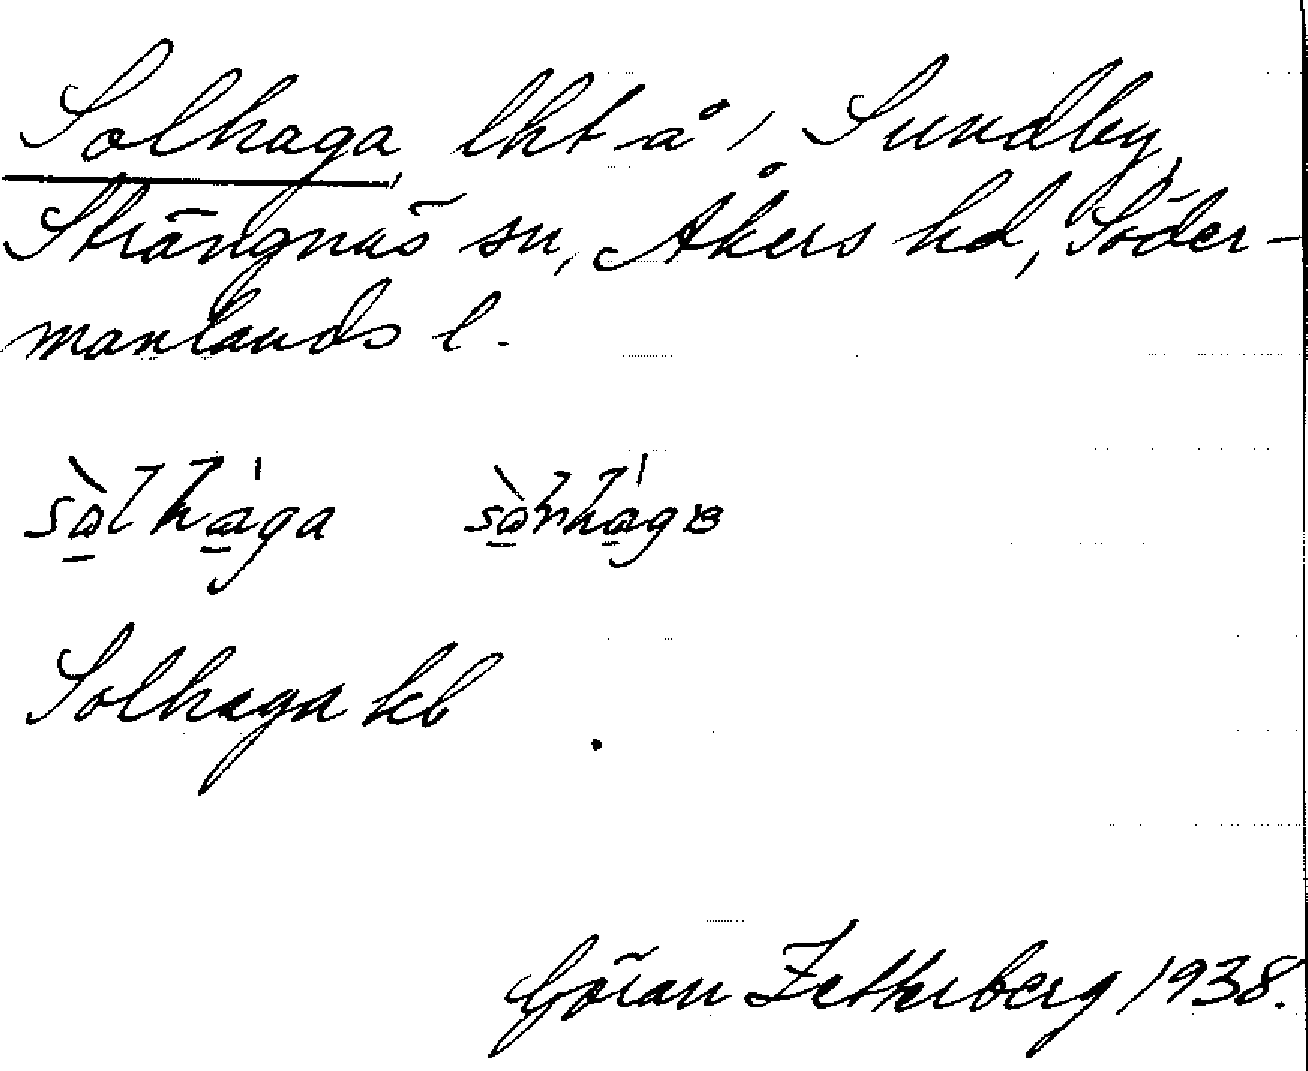 Solhaga, lht å 1 Sundby,
Strängnäs sn, Åkers hd, Söder-
manlands l.
sòlhàga
Solhaga kb
Göran Zetterberg 1938.